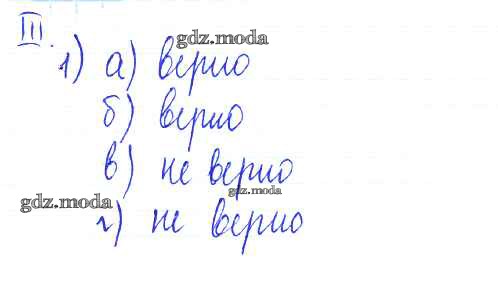 III.
gdz.moda
1) а) верно
б) верно
в) не верно
gdz.moda
gdz.moda
г) не верно